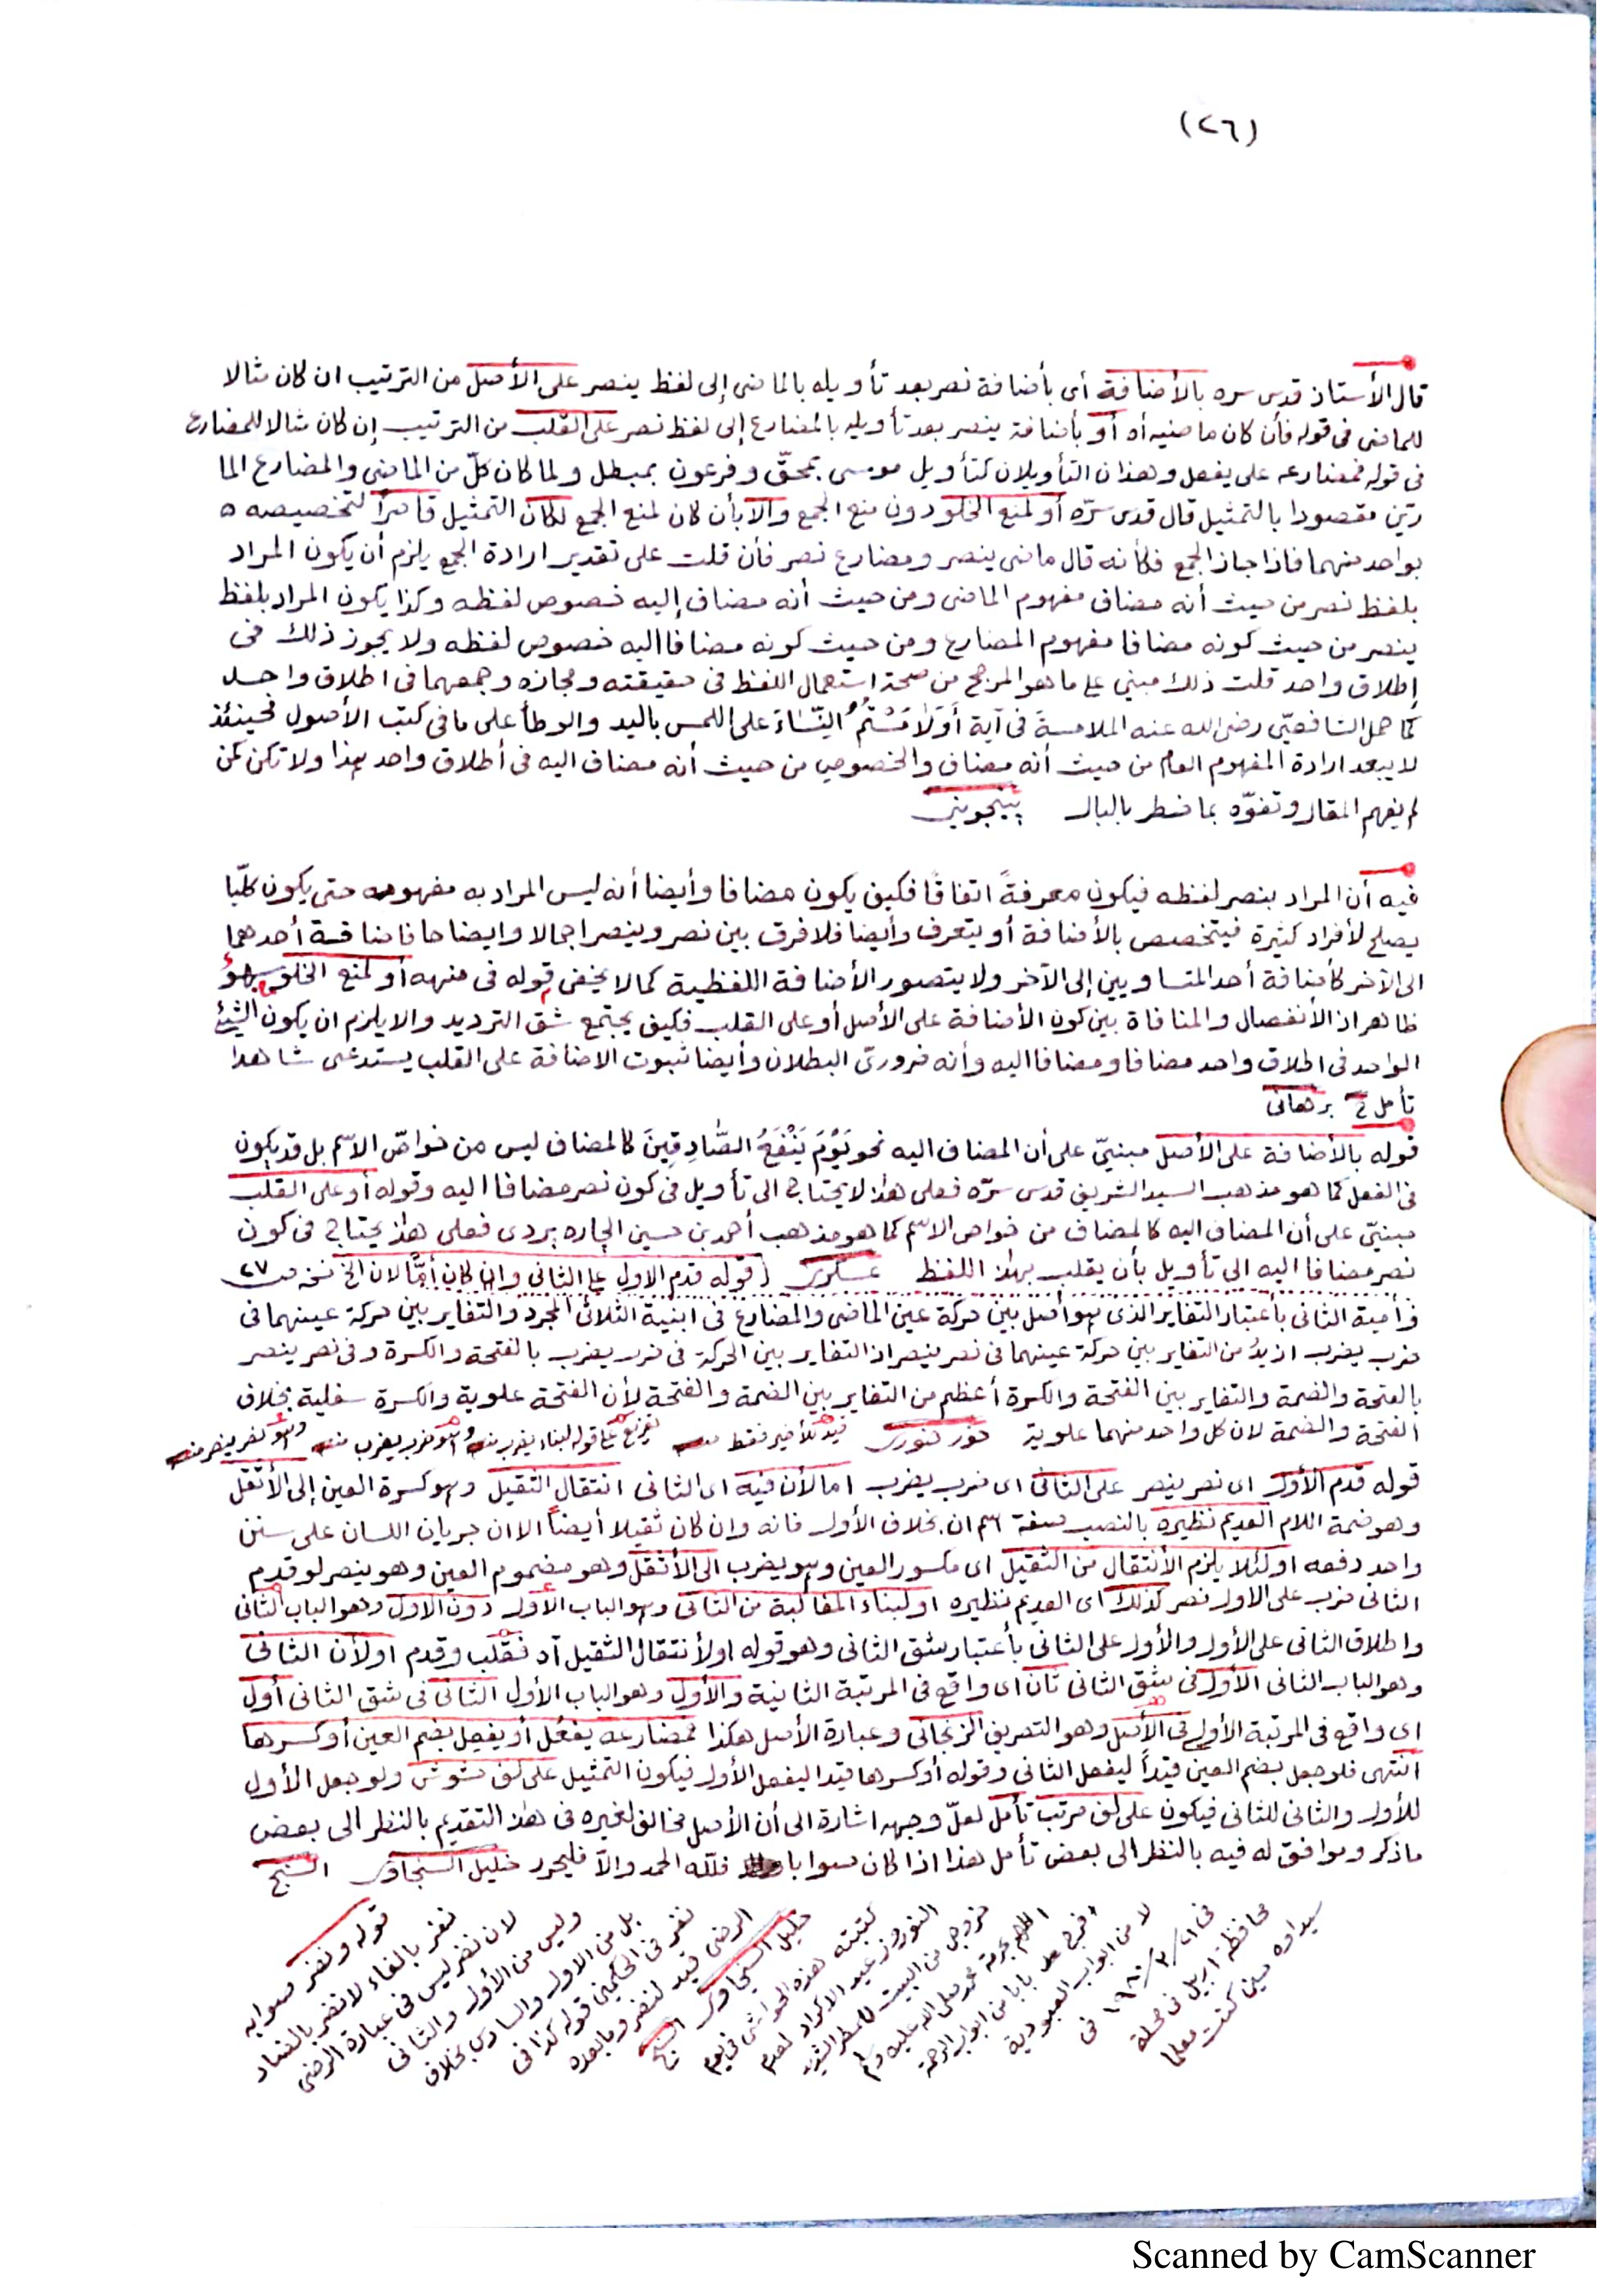 (٢٦)
قال الأستاذ قدس سره بالأضافة أى بأضافة نصر بعد تأويله بالماضى إلى لفظ ينصر على الأصل من الترتيب ان كان مثالا
للماضى فى قوله فأن كان ماضيه أه أو بأضافة ينصر بعد تأويله بالمضارع إلى لفظ نصر على القلب من الترتيب إن كان مثالا للمضارع
فى قوله فمضارعه على يفعل وهذان التأويلان كتأويل موسى بمحقّ وفرعون بمبطل ولما كان كلّ من الماضى والمضارع الما
رّين مقصودا بالتمثيل قال قدس سرّه أو لمنع الخلو دون منع الجمع والا بأن كان لمنع الجمع لكان التمثيل قاصراً لتخصيصه ه
بواحد منهما فاذا جاز الجمع فكأنه قال ماضى ينصر ومضارع نصر فأن قلت على تقدير ارادة الجمع يلزم أن يكون المراد
بلفظ نصر من حيث أنه مضاف مفهوم الماضى ومن حيث أنه مضاف إليه خصوص لفظه وكذا يكون المراد بلفظ
ينصر من حيث كونه مضافا مفهوم المضارع ومن حيث كونه مضافا اليه خصوص لفظه ولا يجوز ذلك فى
إطلاق واحد قلت ذلك مبني على ما هو المرجح من صحة استعمال اللفظ فى حقيقته ومجازه وجمعهما فى اطلاق واحد
كما حمل الشافعيّ رضى الله عنه الملامسة فى آية أَوْلٰمَسْتُمُ النِّسَاءَ على اللمس باليد والوطأ على ما فى كتب الأصول فحينئذ
لا يبعد ارادة المفهوم العام من حيث أنه مضاف والخصوص من حيث أنه مضاف اليه فى أطلاق واحد بهذا ولا تكن كمن
لم يفهم المقال وتفوّه بما خطر بالبال پينجوينى
فيه أن المراد بنصر لفظه فيكون معرفةً اتفاقًا فكيف يكون مضافا وأيضا أنه ليس المراد به مفهومه حتى يكون كلّيا
يصلح لأفراد كثيرة فيتخصص بالأضافة أو يتعرف وأيضا فلا فرق بين نصر وينصر اجمالا وايضاحا فاضافة أحدهما
الى الآخر كأضافة أحد المتساويين إلى الآخر ولا يتصور الأضافة اللفظية كما لا يخفى قوله فى منهه أو لمنع الخلو هو
ظاهر اذ الأنفصال والمنافاة بين كون الأضافة على الأصل أو على القلب فكيف يجتمع شق الترديد والا يلزم ان يكون الشيئ
الواحد فى اطلاق واحد مضافا ومضافا اليه وأنه ضرورىّ البطلان وأيضا ثبوت الاضافة على القلب يستدعى شاهدا
تأمل برهانى
قوله بالأضافة على الأصل مبنيّ على أن المضاف اليه نحو يَوْمَ يَنْفَعُ الصَّادِقِينَ كالمضاف ليس من خواصّ الاسم بل قد يكون
فى الفعل كما هو مذهب السيد الشريف قدس سرّه فعلى هذا لا يحتاج الى تأويل فى كون نصر مضافا اليه وقوله أو على القلب
مبنيّ على أن المضاف اليه كالمضاف من خواص الاسم كما هو مذهب أحمد بن حسين الجاره بردى فعلى هذا يحتاج فى كون
نصر مضافا اليه الى تأويل بأن يقلب بهذا اللفظ عسكرى (قوله قدم الاول على الثانى وان كان أجمّا لان الخ ٢٧
وأمية الثانى بأعتبار التغاير الذى هو أصل بين حركة عين الماضى والمضارع فى ابنية الثلاثى المجرد والتغاير بين حركة عينهما فى
ضرب يضرب ازيد من التغاير بين حركة عينهما فى نصر ينصر اذ التغاير بين الحركة فى ضرب يضرب بالفتحة والكسرة وفى نصر ينصر
بالفتحة والضمة والتغاير بين الفتحة والكسرة أعظم من التغاير بين الضمة والفتحة لأن الفتحة علوية والكسرة سفلية بخلاف
الفتحة والضمة لان كل واحد منهما علوية قيد للأخير فقط
قوله قدم الأول اى نصر ينصر على الثانى اى ضرب يضرب اما لأن فيه اى الثانى انتقال الثقيل وهو كسرة العين إلى الأثقل
وهو ضمة اللام العديم نظيره بالنصب صفة اسم ان بخلاف الأول فانه وان كان ثقيلا أيضاً الا ان جريان اللسان على سنن
واحد دفعه او لئلا يلزم الأنتقال من الثقيل اى مكسور العين وهو يضرب الى الأثقل وهو مضموم العين وهو ينصر لو قدم
الثانى ضرب على الاول نصر كذلك اى العديم نظيره او لبناء المغالبة من الثانى وهو الباب الأول دون الاول وهو الباب الثانى
واطلاق الثانى على الأول والأول على الثانى بأعتبار شق الثانى وهو قوله او لأنتقال الثقيل آه فقلب وقدم او لأن الثانى
وهو الباب الثانى الأول فى شق الثانى ثان اى واقع فى المرتبة الثانية والأول وهو الباب الأول الثانى فى شق الثانى أول
اى واقع فى المرتبة الأولى فى الأصل وهو التصريف الزنجانى وعبارة الأصل هكذا فمضارعه يفعُل أو يفعِل بضم العين أو كسرها
انتهى فلو جعل بضم العين قيداً ليفعل الثانى وقوله أو كسرها قيدا ليفعل الأول فيكون التمثيل على لف مشوش ولو جعل الأول
للأول والثانى للثانى فيكون على لف مرتب تأمل لعلّ وجهه اشارة الى أن الأصل مخالف لغيره فى هذا التقديم بالنظر الى بعض
ما ذكر وموافق له فيه بالنظر الى بعض تأمل هذا اذا كان صوابا فلله الحمد والاّ فليحرر خليل السنجاوى
قوله ونصر صوابه
نفر بالفاء لا نضر بالضاد
لان نضر ليس فى عبارة الرضى
وليس من الأول والثانى
بل من الاول والسادس بخلاف
نفر فى الحكمين قوله كذا فى
الرضى قيد لنضر وما بعده
خليل السنجاوى
كتبته هذه الحواشى فى يوم
النوروز عيد الاكراد
لا من ابواب العبودية
فى ٢١/٣/١٩٨٠ فى
محافظة اربيل فى محلة
سيداوه حين كنت معلما
Scanned by CamScanner